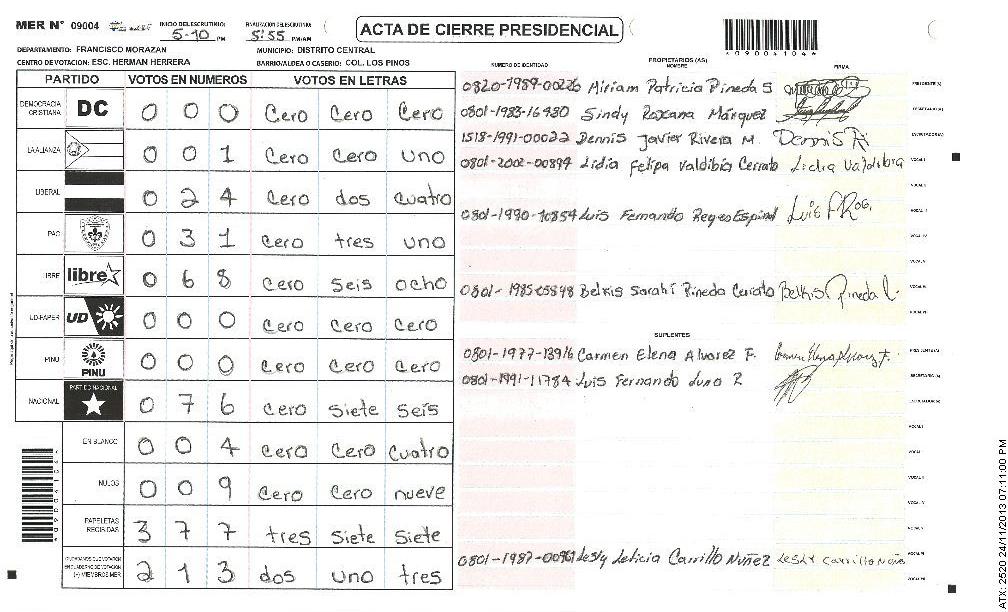 MER N° 09004
INICIO DEL ESCRUTINIO:
5-10 PM
FINALIZACION DEL ESCRUTINIO:
5:55 PM/AM
ACTA DE CIERRE PRESIDENCIAL
*0900410 4*
DEPARTAMENTO: FRANCISCO MORAZAN
MUNICIPIO: DISTRITO CENTRAL
CENTRO DE VOTACION: ESC. HERMAN HERRERA
BARRIO/ALDEA O CASERIO: COL. LOS PINOS
PARTIDO VOTOS EN NUMEROS VOTOS EN LETRAS
DEMOCRACIA CRISTIANA DC 0 0 0 Cero Cero Cero
LA ALIANZA 0 0 1 Cero Cero uno
LIBERAL 0 2 4 Cero dos cuatro
PAC 0 3 1 Cero tres uno
LIBRE libre 0 6 8 Cero Seis ocho
UD-FAPER UD 0 0 0 Cero Cero Cero
PINU PINU 0 0 0 Cero Cero Cero
NACIONAL PARTIDO NACIONAL 0 7 6 Cero Siete Seis
EN BLANCO 0 0 4 Cero Cero Cuatro
NULOS 0 0 9 Cero Cero nueve
PAPELETAS RECIBIDAS 3 7 7 tres Siete Siete
CIUDADANOS QUE VOTARON EN CUADERNO DE VOTACION (+) MIEMBROS MER 2 1 3 dos uno tres
NUMERO DE IDENTIDAD PROPIETARIOS (AS) NOMBRE FIRMA
0820-1989-00226 Miriam Patricia Pineda S PRESIDENTE(A)
0801-1983-16980 Sindy Roxana Márquez SECRETARIO(A)
1518-1991-00022 Dennis Javier Rivera M. Dennis R ESCRUTADOR(A)
0801-2002-00899 Lidia Felipa Valdibia Cerrato Lidia Valdibia VOCAL I
VOCAL II
0801-1990-10854 Luis Fernando Reyes Espinal Luis F Rog. VOCAL III
VOCAL IV
VOCAL V
0801-1985-05898 Belkis Sarahi Pineda Cerrato Belkis Pineda C. VOCAL VI
VOCAL VII
SUPLENTES
0801-1977-13916 Carmen Elena Alvarez F. PRESIDENTE(A)
0801-1991-11784 Luis Fernando Luna R SECRETARIO(A)
ESCRUTADOR(A)
VOCAL I
VOCAL II
VOCAL III
VOCAL IV
VOCAL V
0801-1987-00961 Lesly Leticia Carrillo Nuñez Lesly Carrillo Nuñez VOCAL VI
VOCAL VII
ATX 2520 24/11/2013 07:11:00 PM